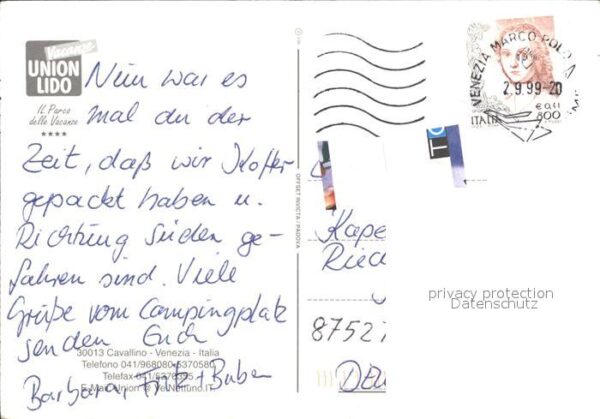 Vacanze
UNION
LIDO
IL Parco
delle Vacanze
★★★★
Nun war es
mal an der
Zeit, daß wir Koffer
gepackt haben u.
Richtung Süden ge-
fahren sind. Viele
Grüße vom Campingplatz
senden Euch
30013 Cavallino - Venezia - Italia
Telefono 041/968080-5370580
Telefax
Barbara, Fritz + Buben
OFFSET INVICTA / PADOVA
VENEZIA MARCO POLO
2.9.99-20
€ 0,41
800
ITALIA
TO
Kape
Ried
privacy protection
Datenschutz
8752
Deu